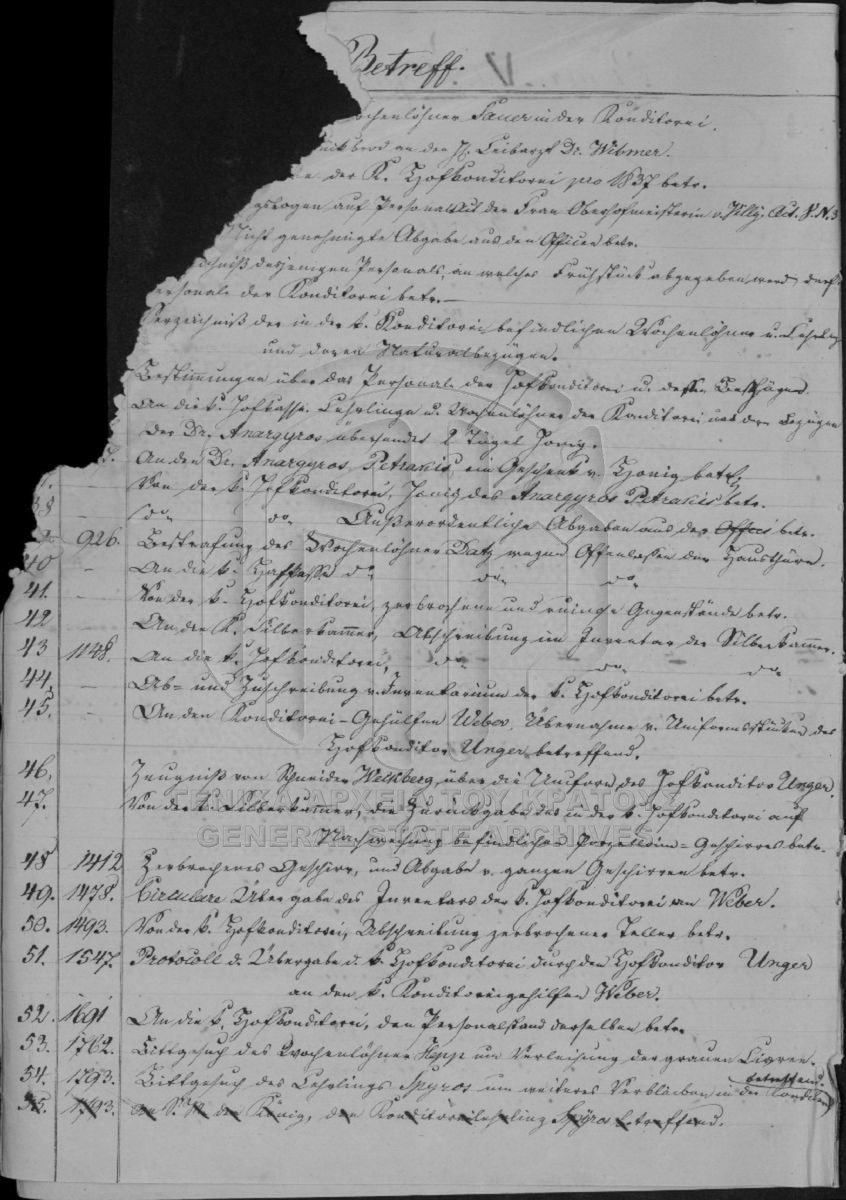 Betreff.
Wochenlöhner Sauer in der Konditorei.
an den H. Leibarzt Dr. Wibmer.
der K. Hofkonditorei pro 1837 betr.
auf Personal Act der Frau Oberhofmeisterin v. Pilly. Act. V. N. 3
Nicht genehmigte Abgabe aus den Officen betr.
desjenigen Personals, an welches Frühstück abgegeben werden darf.
Personale der Konditorei betr.
Verzeichniß der in der k. Konditorei befindlichen Wochenlöhner u. Lehrling
und deren Naturalbezügen.
Bestimmungen über das Personale der Hofkonditorei u. dessen Bezüge.
An die k. Hofkasse. Lehrlinge u. Wochenlöhner der Konditorei und deren Bezügen
Der Dr. Anargyros übersendet 2 Honig.
An den Dr. Anargyros Petrakis, ein Geschenk v. Honig betr.
Von der k. Hofkonditorei, Honig des Anargyros Petrakis betr.
38 — do do Außerordentliche Abgaben aus der Offici betr.
926. Bestrafung des Wochenlöhner Datz wegen Offenlassen der Hausthüre.
40 — An die k. Hofkasse do do do
41. — Von der k. Hofkonditorei, zerbrochene und ruinirte Gegenstände betr.
42 An die K. Silberkammer, Abschreibung im Inventar der Silberkammer.
43 1148. An die k. Hofkonditorei, do do do
44. — Ab- und Zuschreibung v. Inventarium der k. Hofkonditorei betr.
45. — An den Konditorei-Gehülfen Weber, Übernahme v. Uniformsstücken des
Hofkonditor Unger betreffend.
46. Zeugniß von Schneider Welsberg, über die Uniform des Hofkonditor Unger.
47. Von der k. Silberkammer, die Zurückgabe des in der k. Hofkonditorei auf
Nachweisung befindlichen Porzellain-Geschirres betr.
ΓΕΝΙΚΑ ΑΡΧΕΙΑ ΤΟΥ ΚΡΑΤΟΥΣ
GENERAL STATE ARCHIVES
48 1412 Zerbrochenes Geschirr, und Abgabe v. ganzen Geschirren betr.
49. 1478. Circulare Übergabe des Inventars der k. Hofkonditorei an Weber.
50. 1493. Von der k. Hofkonditorei, Abschreibung zerbrochener Teller betr.
51. 1547. Protocoll d. Übergabe d. k. Hofkonditorei durch den Hofkonditor Unger
an den k. Konditoreigehilfen Weber.
52. 1691 An die k. Hofkonditorei, den Personalstand derselben betr.
53. 1762. Bittgesuch des Wochenlöhner um Verleihung der grauen Livree.
54. 1793. Bittgesuch des Lehrlings Spyros um weiteres Verbleiben in der Konditorei
betreffend.
55. 1793. An S. M. den König, den Konditoreilehrling Spyros betreffend.